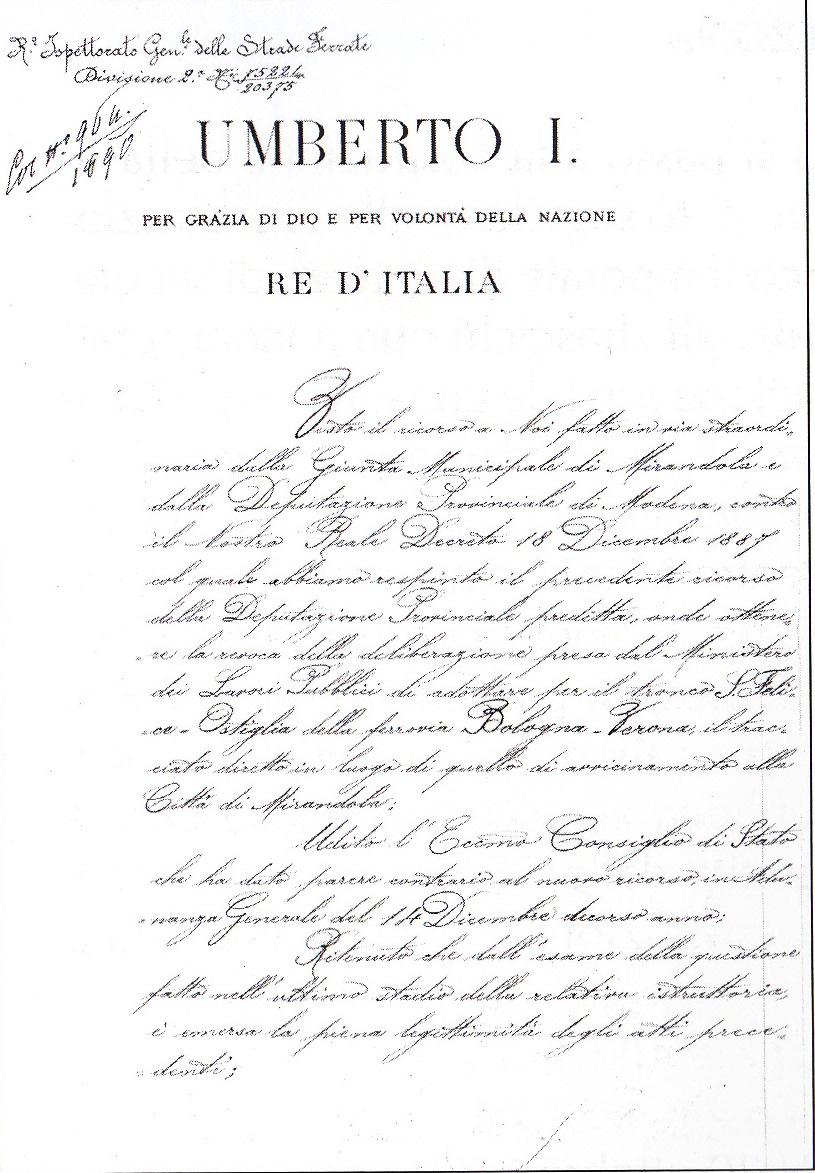 R.º Ispettorato Gen.le delle Strade Ferrate
Divisione 2.ª N.i 75221
20375
N.º 904.
1890
UMBERTO I.
PER GRAZIA DI DIO E PER VOLONTÀ DELLA NAZIONE
RE D' ITALIA
Visto il ricorso a Noi fatto in via straordi-
naria dalla Giunta Municipale di Mirandola e
dalla Deputazione Provinciale di Modena, contro
il Nostro Reale Decreto 18 Dicembre 1887
col quale abbiamo respinto il precedente ricorso
della Deputazione Provinciale predetta, onde ottene-
-re la revoca della deliberazione presa dal Ministero
dei Lavori Pubblici di adottare per il tronco S. Feli-
-ce-Ostiglia della ferrovia Bologna-Verona, il trac-
ciato diretto in luogo di quello di avvicinamento alla
Città di Mirandola;
Udito l' Eccmo Consiglio di Stato
che ha dato parere contrario al nuovo ricorso, in Adu-
-nanza Generale del 14 Dicembre decorso anno;
Ritenuto che dall' esame della questione
fatto nell' ultimo stadio della relativa istruttoria,
è emersa la piena legittimità degli atti prece-
-denti;